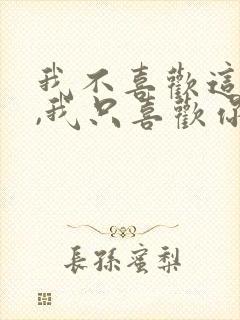 我不喜歡這
,我只喜歡你
長孫蜜梨